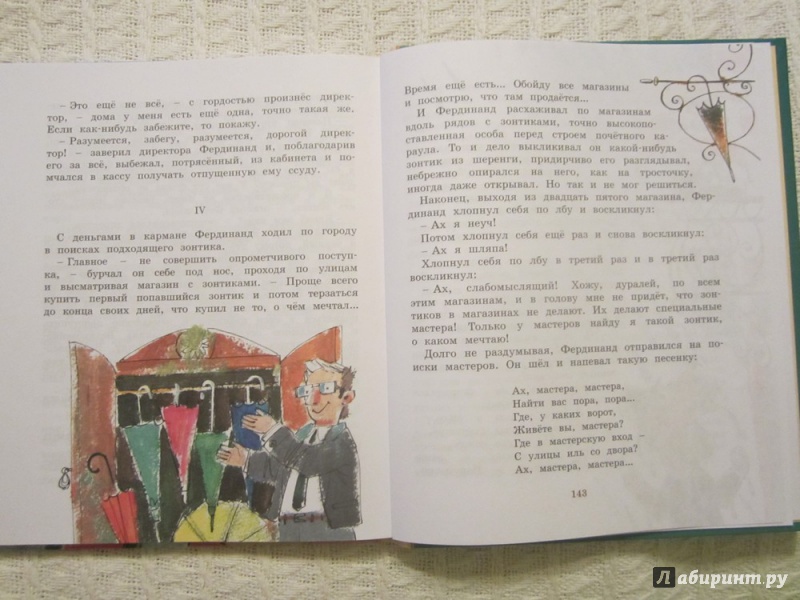 – Это ещё не всё, – с гордостью произнёс дирек-
тор, – дома у меня есть ещё одна, точно такая же.
Если как-нибудь забежите, то покажу.
– Разумеется, забегу, разумеется, дорогой дирек-
тор! – заверил директора Фердинанд и, поблагодарив
его за всё, выбежал, потрясённый, из кабинета и по-
мчался в кассу получать отпущенную ему ссуду.
IV
С деньгами в кармане Фердинанд ходил по городу
в поисках подходящего зонтика.
– Главное – не совершить опрометчивого поступ-
ка, – бурчал он себе под нос, проходя по улицам
и высматривая магазин с зонтиками. – Проще всего
купить первый попавшийся зонтик и потом терзаться
до конца своих дней, что купил не то, о чём мечтал...
Время ещё есть... Обойду все магазины
и посмотрю, что там продаётся...
И Фердинанд расхаживал по магазинам
вдоль рядов с зонтиками, точно высокопо-
ставленная особа перед строем почётного ка-
раула. То и дело выкликивал он какой-нибудь
зонтик из шеренги, придирчиво его разглядывал,
небрежно опирался на него, как на тросточку,
иногда даже открывал. Но так и не мог решиться.
Наконец, выходя из двадцать пятого магазина, Фер-
динанд хлопнул себя по лбу и воскликнул:
– Ах я неуч!
Потом хлопнул себя ещё раз и снова воскликнул:
– Ах я шляпа!
Хлопнул себя по лбу в третий раз и в третий раз
воскликнул:
– Ах, слабомыслящий! Хожу, дуралей, по всем
этим магазинам, и в голову мне не придёт, что зон-
тиков в магазинах не делают. Их делают специальные
мастера! Только у мастеров найду я такой зонтик,
о каком мечтаю!
Долго не раздумывая, Фердинанд отправился на по-
иски мастеров. Он шёл и напевал такую песенку:
Ах, мастера, мастера,
Найти вас пора, пора...
Где, у каких ворот,
Живёте вы, мастера?
Где в мастерскую вход –
С улицы иль со двора?
Ах, мастера, мастера...
143
Лабиринт.ру